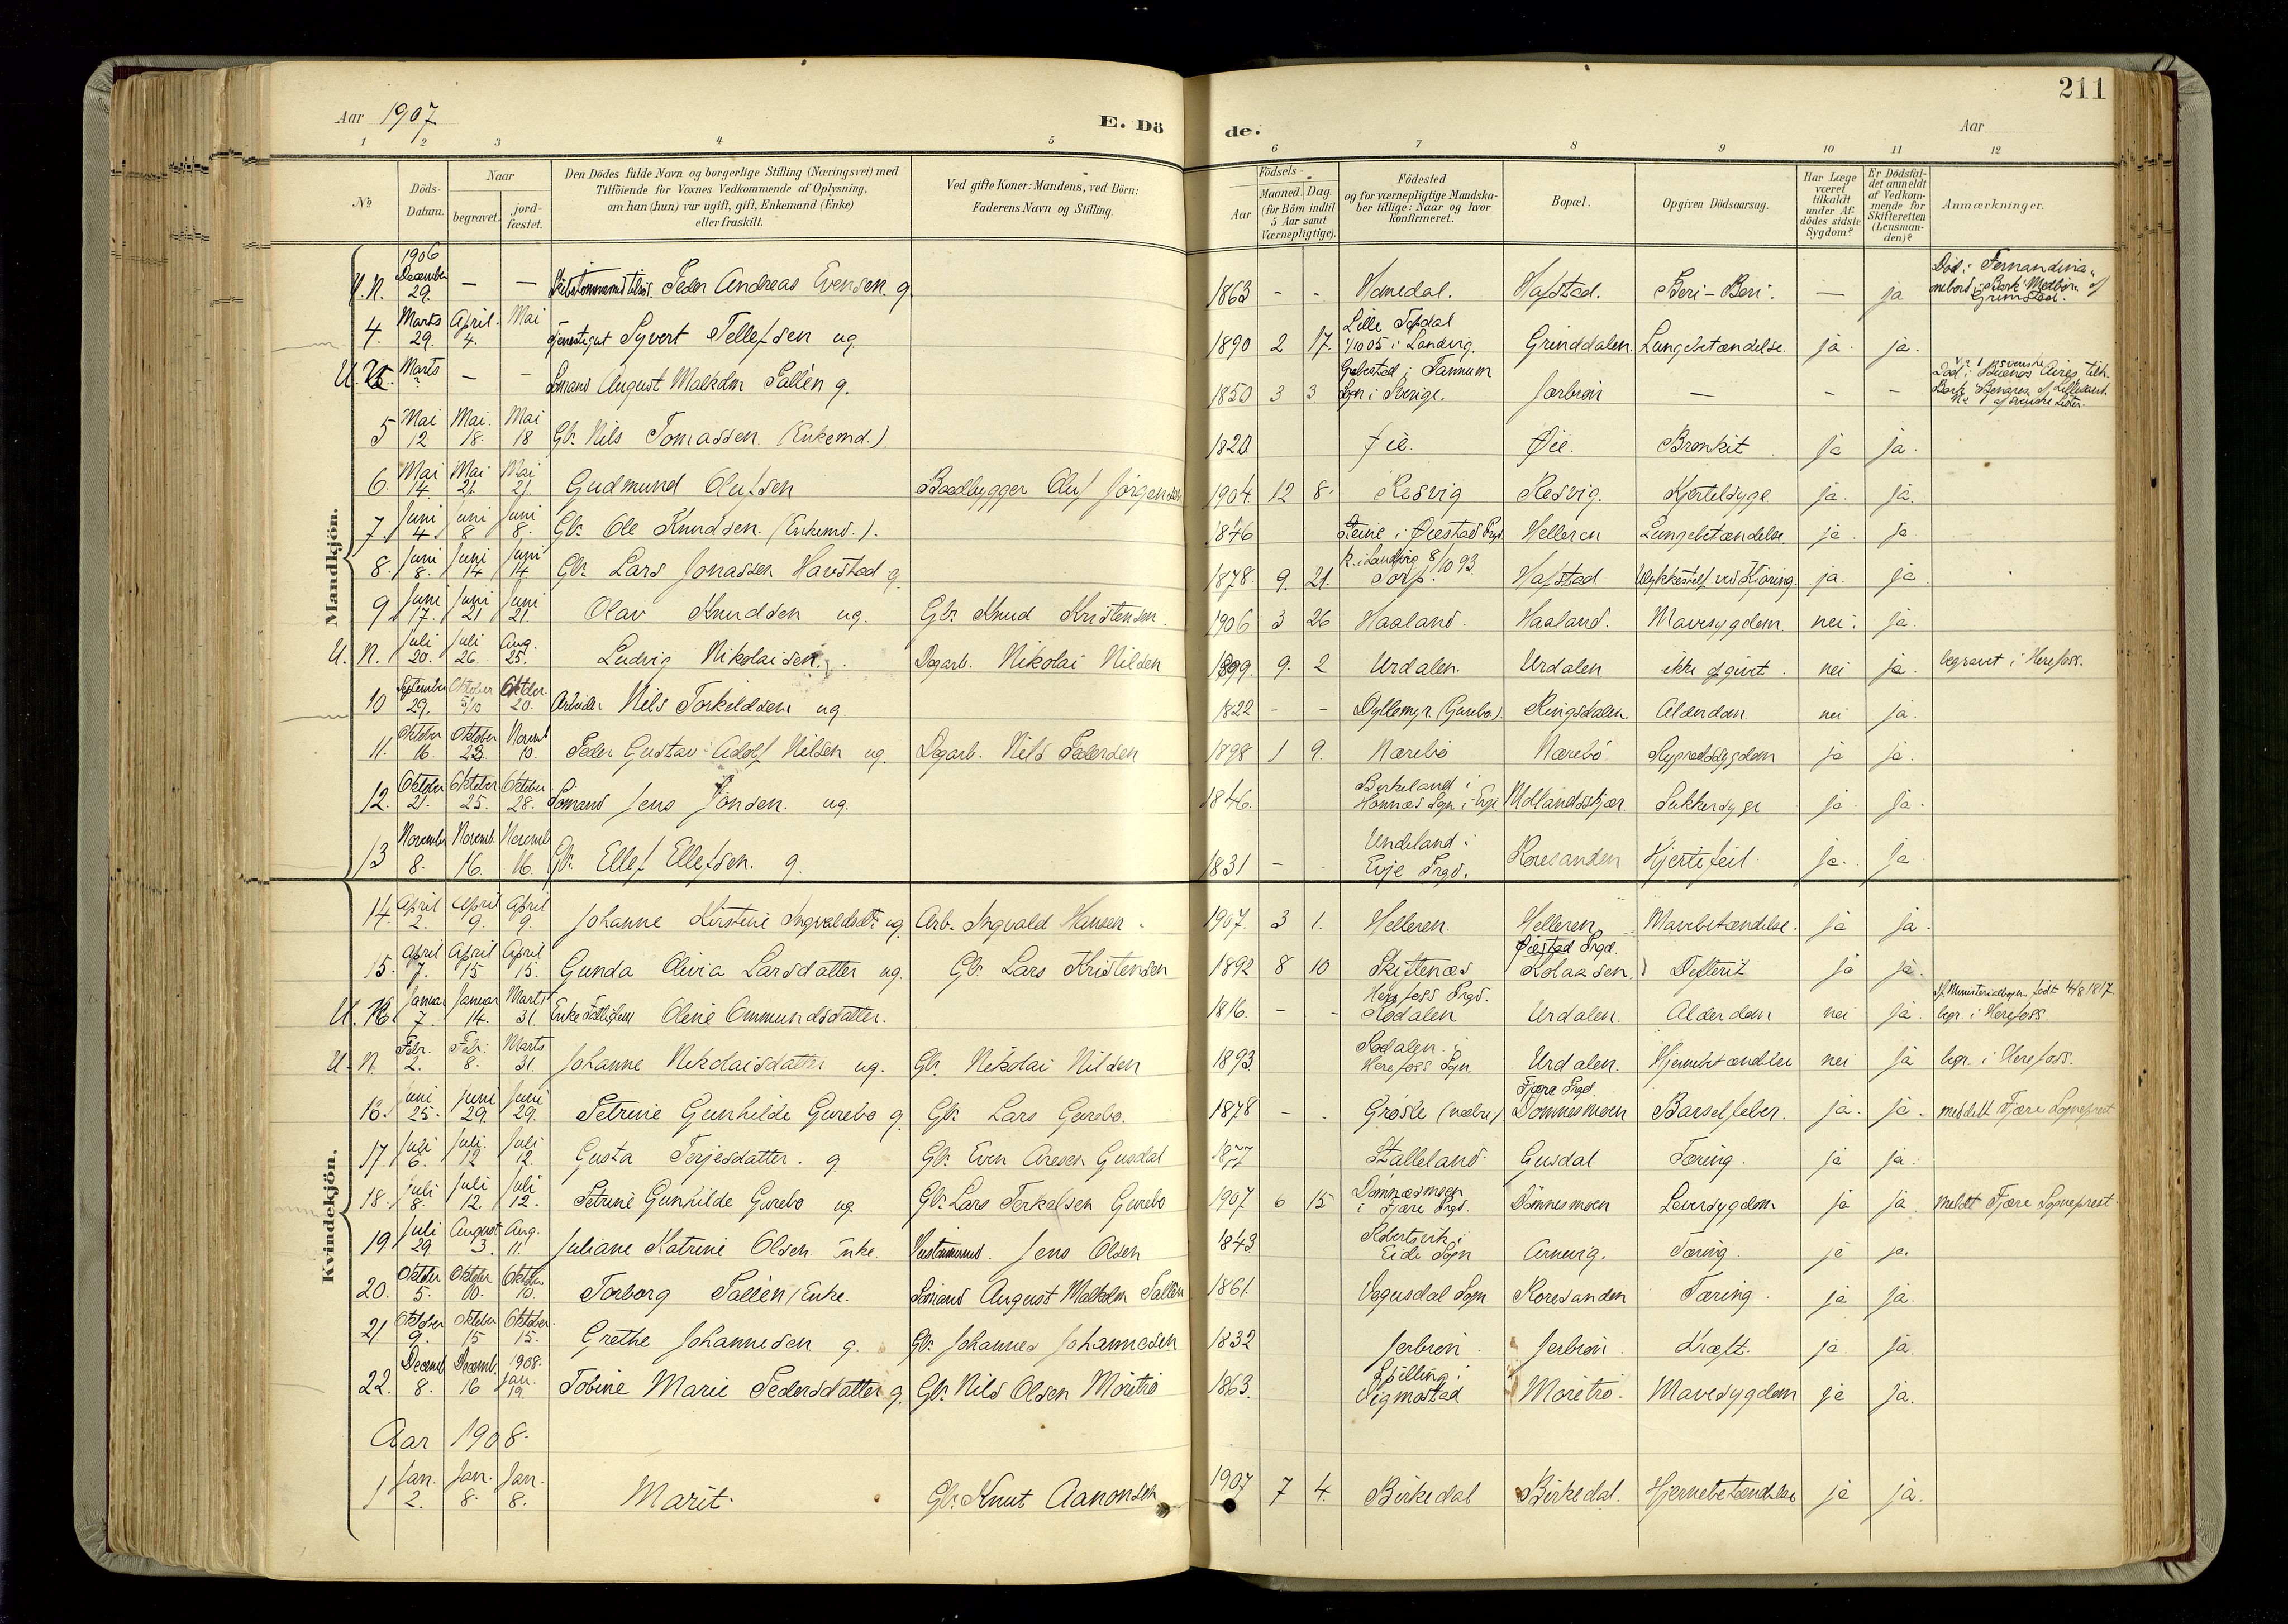 211
Aar 1907
E. Dö de.
Aar
1 2 3 4 5 6 7 8 9 10 11 12
No
Döds-Datum.
Naar
begravet.
jord-fæstet.
Den Dödes fulde Navn og borgerlige Stilling (Næringsvei) med
Tilföiende for Voxnes Vedkommende af Oplysning,
om han (hun) var ugift, gift, Enkemand (Enke)
eller fraskilt.
Ved gifte Koner: Mandens, ved Börn:
Faderens Navn og Stilling.
Födsels-
Aar
Maaned. Dag.
(for Börn indtil
5 Aar samt
Værnepligtige).
Födested
og for værnepligtige Mandska-
ber tillige: Naar og hvor
konfirmeret.
Bopæl.
Opgiven Dödsaarsag.
Har Læge
været
tilkaldt
under Af-
dödes sidste
Sygdom?
Er Dödsfal-
det anmeldt
af Vedkom-
mende for
Skifteretten
(Lensman-
den)?
Anmærkninger.
Mandkjön.
U.N. 1906 December 29. — — Peder Andreas Evensen. g. 1863 - - Homedal. Hafstad. Beri-Beri. — ja Död i Fernandina Grimstad.
4. Marts 29. April 4. Mai Tjenestegut Syvert Tellefsen ug 1890 2 17. Lille Topdal 1/10 05 i Landvig. Grinddalen. Lungebetændelse. ja. ja.
U.N. Marts — — Sömand August Malkolm Sallèn g. 1850 3 3 i Tannum Sogn i Sverige. Jærbrön — - — Död i Buenos Aires
5 Mai 12 Mai. 18. Mai 18 Gbr. Nils Tomassen. (Enkemd.). 1820 Øie. Øie. Bronkit ja ja.
6. Mai 14. Mai 21. Mai 21. Gudmund Olufsen Baadbygger Oluf Jörgensen 1904 12 8. Resvig Resvig. Kjertelsyge ja. ja.
7. Juni 4. Juni 8 Juni 8. Gbr. Ole Knudsen. (Enkemd.). 1846 i Øiestad Prgd. Helleren Lungebetændelse. ja ja
8. Juni 8. Juni 14 Juni 14 Gbr. Lars Jonassen Havstad g. 1878. 9. 21. K. i Landvig 8/10 93. Torp. Hafstad Ulykkestilf. ved Kjøring. ja. ja
9 Juni 17. Juni 21 Juni 21. Olav Knudsen ug. Gbr. Knud Kristensen. 1906 3 26 Haaland. Haaland. Mavesygdom nei. ja.
U. N. Juli 20. Juli 26. Aug. 25. Ludvig Nikolaisen. Dagarb. Nikolai Nilsen 1899. 9. 2 Urdalen. Urdalen ikke opgivet. nei ja. begravet i Herefoss.
10 September 29. Oktober 5/10 Oktober 20. Arbeider Nils Torkildsen ug. 1822 - - Dyllemyr. (Gurebo). Ringsdalen. Alderdom. nei ja.
11. Oktober 16. Oktober 23 Novemb 10. Peder Gustav Adolf Nilsen ug. Dagarb. Nils Pedersen 1898 1 9. Nærebö Nærebö. Rygradssygdom ja ja.
12. Oktober 21. Oktober 25. Oktober 28. Sömand Jens Jonsen. ug. 1846. Birkeland i Sukkersyge ja. ja.
13 November 8. Novemb. 16. Novemb 16. Gbr. Ellef Ellefsen. g. 1831 - - Undeland i Evje Prgd. Roresanden Hjertefeil. ja. ja
Kvindekjön.
14. April 2. April 9. April 9. Johanne Kirstine Ingvaldsdt. ug. Arb. Ingvald Hansen. 1907. 3 1. Helleren. Helleren Mavebetændelse. ja ja.
15. April 7. April 15 April 15. Gunda Olivia Larsdatter ug. Gbr. Lars Kristensen 1892 8 10 Skiftenæs Øiestad Prgd. Difterit ja ja.
U. N. Januar 7. Januar 14. Marts 31. Enke Fattiglem Oline Ommundsdatter. 1816. - - Herefoss Prgd. Rodalen Urdalen. Alderdom nei ja. Ministerialbogen født 4/8 1817 begr. i Herefoss.
U. N. Febr. 2. Febr. 8. Marts 31. Johanne Nikolaisdatter ug. Gbr. Nikolai Nilsen 1893. Rodalen i Herefoss Sogn. Urdalen. Hjernebetændelse nei ja begr. i Herefoss.
16. Juni 25. Juni 29. Juni 29. Petrine Gunhilde Gurebo g. Gbr. Lars Gurebo. 1878 - . Grösle (nedre). Fjære Prgd. Dömmesmoen Barselfeber. ja. ja. meldt Fjære Sogneprest
17. Juli 6. Juli. 12 Juli 12. Gusta Terjesdatter. g Gbr. Even Aresen Gusdal 1877 Stalleland. Gusdal Tæring. ja ja.
18. Juli 8. Juli 12. Juli 12. Petrine Gunhilde Gurebo ug. Gbr. Lars Terkelsen Gurebo 1907 6 15 Dömmesmoen i Fjære Prgd. Dömmesmoen Leversygdom ja ja. meldt Fjære Sogneprest.
19. Juli 29 August 3. Aug. 11. Juliane Katrine Olsen Enke. Hustömmerm. Jens Olsen 1843 i Eide Sogn Arnevig. Tæring. ja ja.
20. Oktober 5. Oktober 10. Oktober 10. Torborg Sallèn Enke. Sömand August Malkolm Sallèn 1861. Vegusdal Sogn Roresanden Tæring. ja ja.
21. Oktober 9. Oktober 15 Oktober. 15. Grethe Johannesen g. Gbr. Johannes Johannesen 1832 Jerbrön. Jerbrön. Kræft. ja ja.
22. Decemb 8. Decemb. 16 1908. Jan. 19. Tobine Marie Pedersdatter g. Gbr. Nils Olsen Möretrö 1863. Spilling i Vigmostad Möretrö. Mavesygdom ja ja.
Aar 1908.
1 Jan. 2. Jan. 8. Jan. 8. Marit. Gbr. Knut Aanonsen. 1907 7 4. Birkedal Birkedal. Hjernebetændelse ja ja.